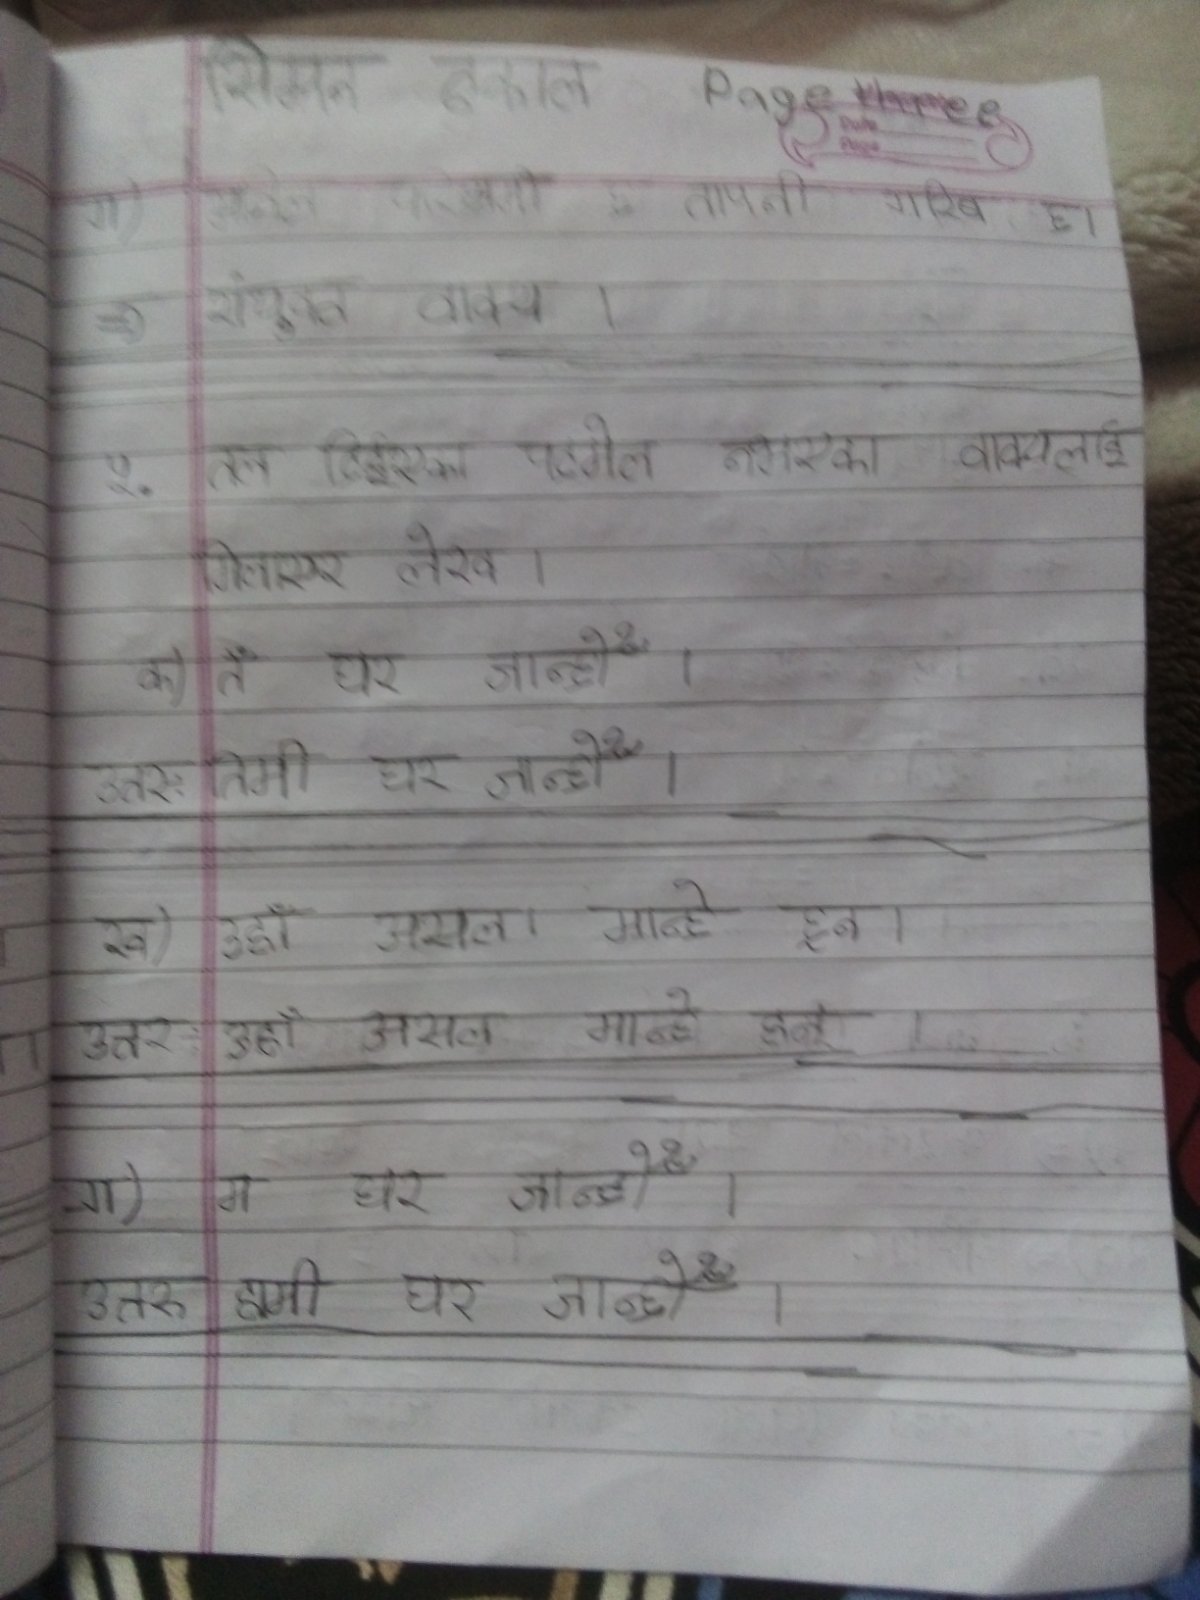 सिमन ढकाल Page three
Date
Page
ग) छ तापनी गरिब छ।
⇒ संयुक्त वाक्य ।
२. तल दिईएका पदमेल नभएका वाक्यलाई
मिलाएर लेख ।
क) तँ घर जान्छौ ।
उत्तरः तिमी घर जान्छौ ।
ख) उहाँ असल। मान्छे हुन ।
उत्तरः उहाँ असल मान्छे हुनु ।
ग) म घर जान्छौ ।
उत्तरः हामी घर जान्छौ ।